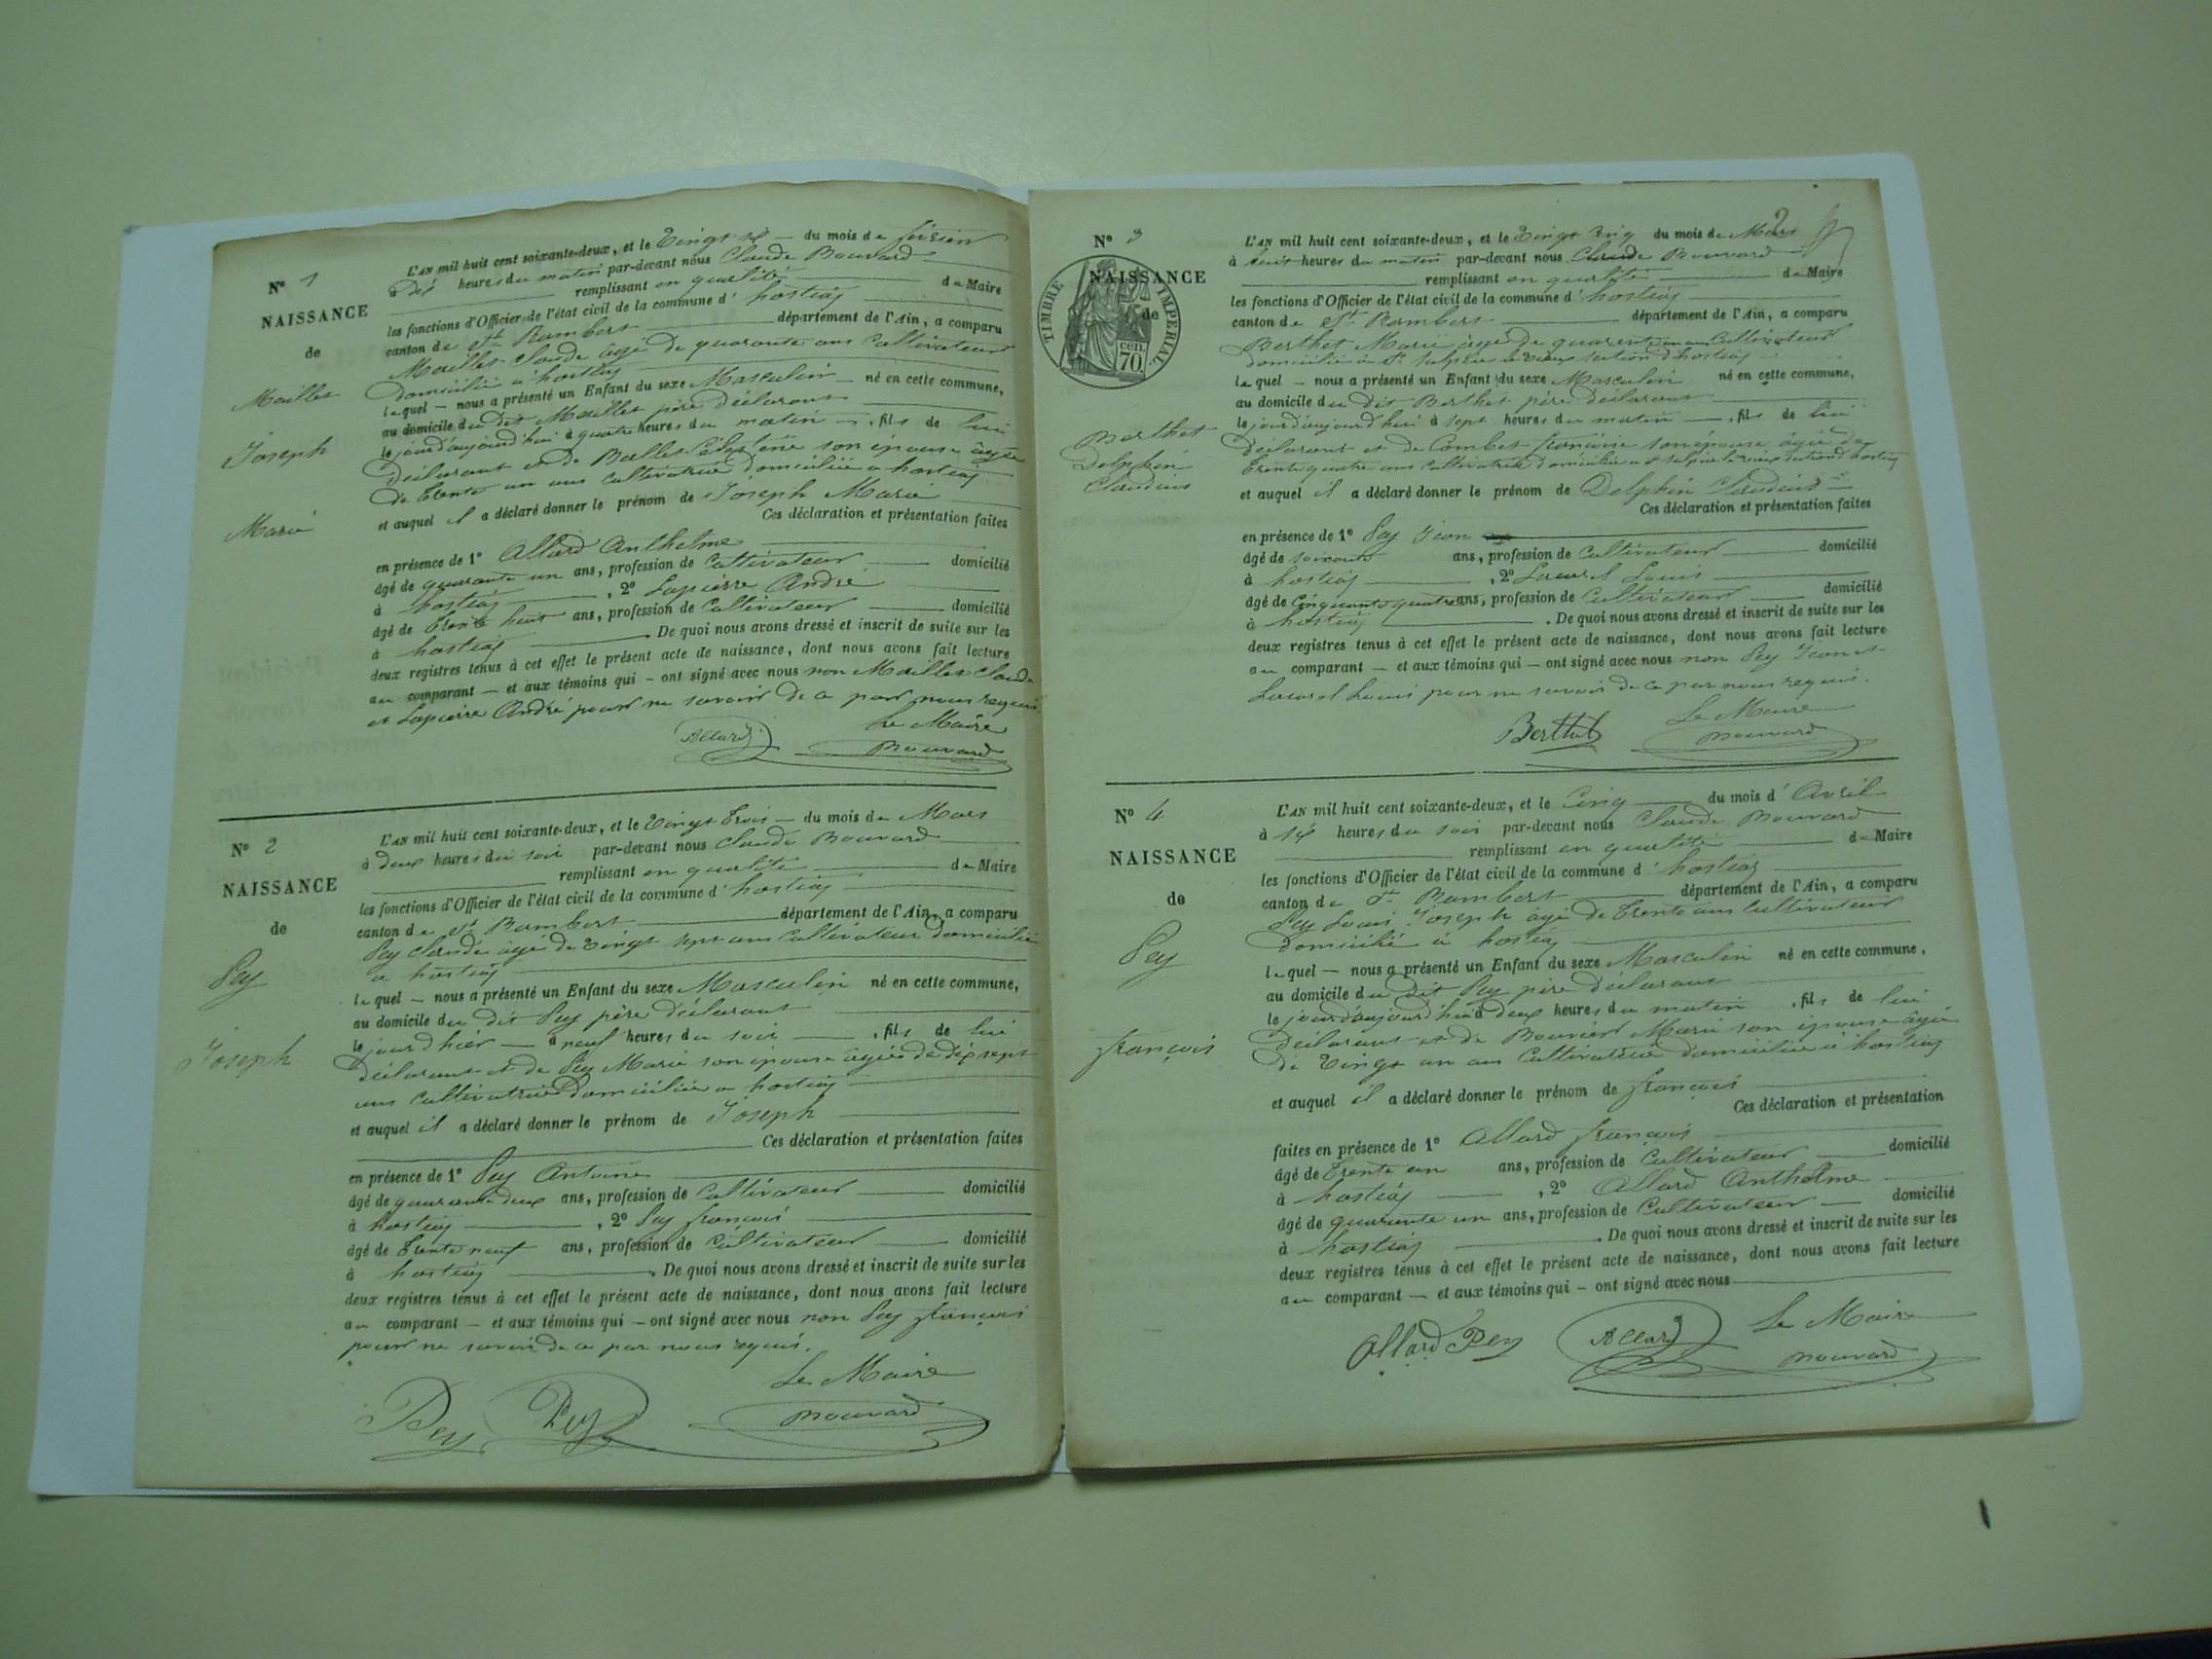 N° 1
NAISSANCE
de
Maillet
Joseph
Marie
L'AN mil huit cent soixante-deux, et le Vingt six du mois de février
à dix heures du matin par-devant nous Claude Bouvard
remplissant en qualité de Maire
les fonctions d'Officier de l'état civil de la commune d'hostiaz
canton de St Rambert département de l'Ain, a comparu
Maillet Claude âgé de quarante ans Cultivateur
domicilié à hostiaz
lequel nous a présenté un Enfant du sexe Masculin né en cette commune,
au domicile du dit Maillet père déclarant
le jour d'aujourd'hui à quatre heures du matin, fils de lui
déclarant et de son épouse âgée
de trente un ans cultivatrice domiciliée a hostiaz
et auquel il a déclaré donner le prénom de Joseph Marie
Ces déclaration et présentation faites
en présence de 1° Allard Anthelme
âgé de quarante un ans, profession de Cultivateur domicilié
à hostiaz, 2° Lapierre André
âgé de trente huit ans, profession de Cultivateur domicilié
à hostiaz. De quoi nous avons dressé et inscrit de suite sur les
deux registres tenus à cet effet le présent acte de naissance, dont nous avons fait lecture
au comparant et aux témoins qui ont signé avec nous non Maillet Claude
et Lapierre André pour ne savoir de ce par nous requis.
Le Maire
Allard Bouvard
N° 2
NAISSANCE
de
Pey
Joseph
L'AN mil huit cent soixante-deux, et le Vingt trois du mois de Mars
à deux heures du soir par-devant nous Claude Bouvard
remplissant en qualité de Maire
les fonctions d'Officier de l'état civil de la commune d'hostiaz
canton de St Rambert département de l'Ain, a comparu
Pey Claude âgé de vingt sept ans Cultivateur domicilié
a hostiaz
lequel nous a présenté un Enfant du sexe Masculin né en cette commune,
au domicile du dit Pey père déclarant
le jour d'hier à neuf heures du soir, fils de lui
déclarant et de Pey Marie son épouse âgée de dix sept
ans cultivatrice domiciliée a hostiaz
et auquel il a déclaré donner le prénom de Joseph
Ces déclaration et présentation faites
en présence de 1° Pey Antoine
âgé de quarante deux ans, profession de Cultivateur domicilié
à hostiaz, 2° Pey françois
âgé de trente neuf ans, profession de Cultivateur domicilié
à hostiaz. De quoi nous avons dressé et inscrit de suite sur les
deux registres tenus à cet effet le présent acte de naissance, dont nous avons fait lecture
au comparant et aux témoins qui ont signé avec nous non Pey françois
pour ne savoir de ce par nous requis.
Le Maire
Pey Pey Bouvard
2
N° 3
NAISSANCE
de
TIMBRE IMPERIAL
70 cen.
Berthet
Delphin
Claudius
L'AN mil huit cent soixante-deux, et le Vingt cinq du mois de Mars
à heures du matin par-devant nous Claude Bouvard
remplissant en qualité de Maire
les fonctions d'Officier de l'état civil de la commune d'hostiaz
canton de St Rambert département de l'Ain, a comparu
Berthet Marie âgé de quarante Cultivateur
domicilié à St Sulpice le vieux section d'hostiaz
lequel nous a présenté un Enfant du sexe Masculin né en cette commune,
au domicile du dit Berthet père déclarant
le jour d'aujourd'hui à sept heures du matin, fils de lui
déclarant et de Combet françoise son épouse âgée de
trente quatre ans cultivatrice domiciliée a St Sulpice le vieux section d'hostiaz
et auquel il a déclaré donner le prénom de Delphin Claudius
Ces déclaration et présentation faites
en présence de 1° Pey Jean
âgé de soixante ans, profession de Cultivateur domicilié
à hostiaz, 2° Louis
âgé de Cinquante quatre ans, profession de Cultivateur domicilié
à hostiaz. De quoi nous avons dressé et inscrit de suite sur les
deux registres tenus à cet effet le présent acte de naissance, dont nous avons fait lecture
au comparant et aux témoins qui ont signé avec nous non Pey Jean et
Louis pour ne savoir de ce par nous requis.
Le Maire
Berthet Bouvard
N° 4
NAISSANCE
de
Pey
françois
L'AN mil huit cent soixante-deux, et le Cinq du mois d'Avril
à six heures du soir par-devant nous Claude Bouvard
remplissant en qualité de Maire
les fonctions d'Officier de l'état civil de la commune d'hostiaz
canton de St Rambert département de l'Ain, a comparu
Pey Louis Joseph âgé de trente ans Cultivateur
domicilié à hostiaz
lequel nous a présenté un Enfant du sexe Masculin né en cette commune,
au domicile du dit Pey père déclarant
le jour d'aujourd'hui à deux heures du matin, fils de lui
déclarant et de Bouvier Marie son épouse âgée
de Vingt un ans Cultivatrice domiciliée à hostiaz
et auquel il a déclaré donner le prénom de françois
Ces déclaration et présentation
faites en présence de 1° Allard françois
âgé de trente un ans, profession de Cultivateur domicilié
à hostiaz, 2° Allard Anthelme
âgé de quarante un ans, profession de Cultivateur domicilié
à hostiaz. De quoi nous avons dressé et inscrit de suite sur les
deux registres tenus à cet effet le présent acte de naissance, dont nous avons fait lecture
au comparant et aux témoins qui ont signé avec nous
Le Maire
Allard Pey Allard Bouvard